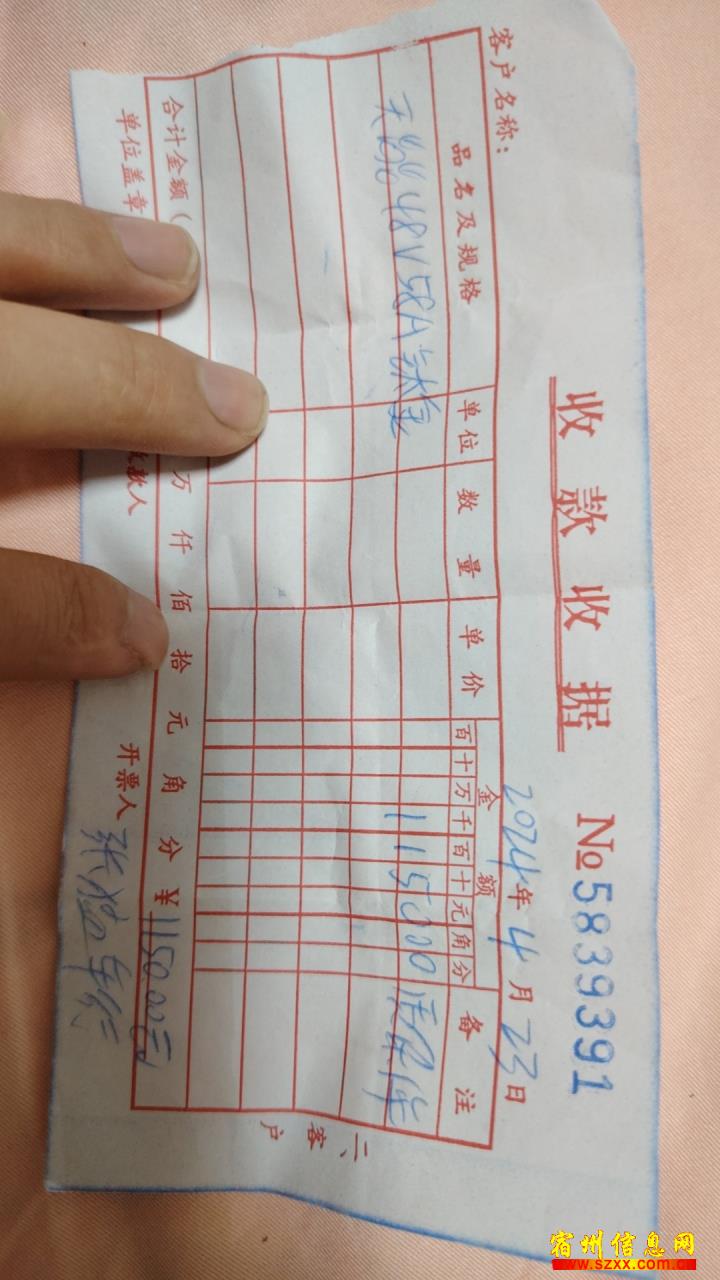 收款收据
№5839391
2024年4月23日
客户名称：
品名及规格 单位 数量 单价 金额 备注
百十万千百十元角分
天能48V58A 115000
合计金额（ 万 仟 佰 拾 元 角 分 ￥1150.00元
单位盖章 款人 开票人
二、客户
宿州信息网
www.szxx.com.cn